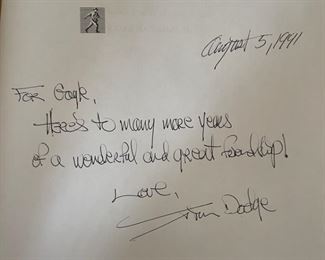 August 5, 1991
For Gayle,
Here's to many more years
of a wonderful and great friendship!
Love,
Jim Dodge